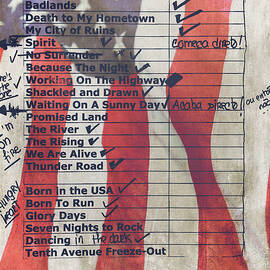 Badlands
Death to My Hometown
My City of Ruins
Spirit
Começa direto!
No Surrender
Because The Night
Working On The Highway
Shackled and Drawn
Waiting On A Sunny Day
Acaba Direto!
Promised Land
The River
on fire
The Rising
We Are Alive
Thunder Road
Hungry Heart
Born in the USA
Born To Run
Glory Days
Seven Nights to Rock
Dancing in the dark
Tenth Avenue Freeze-Out